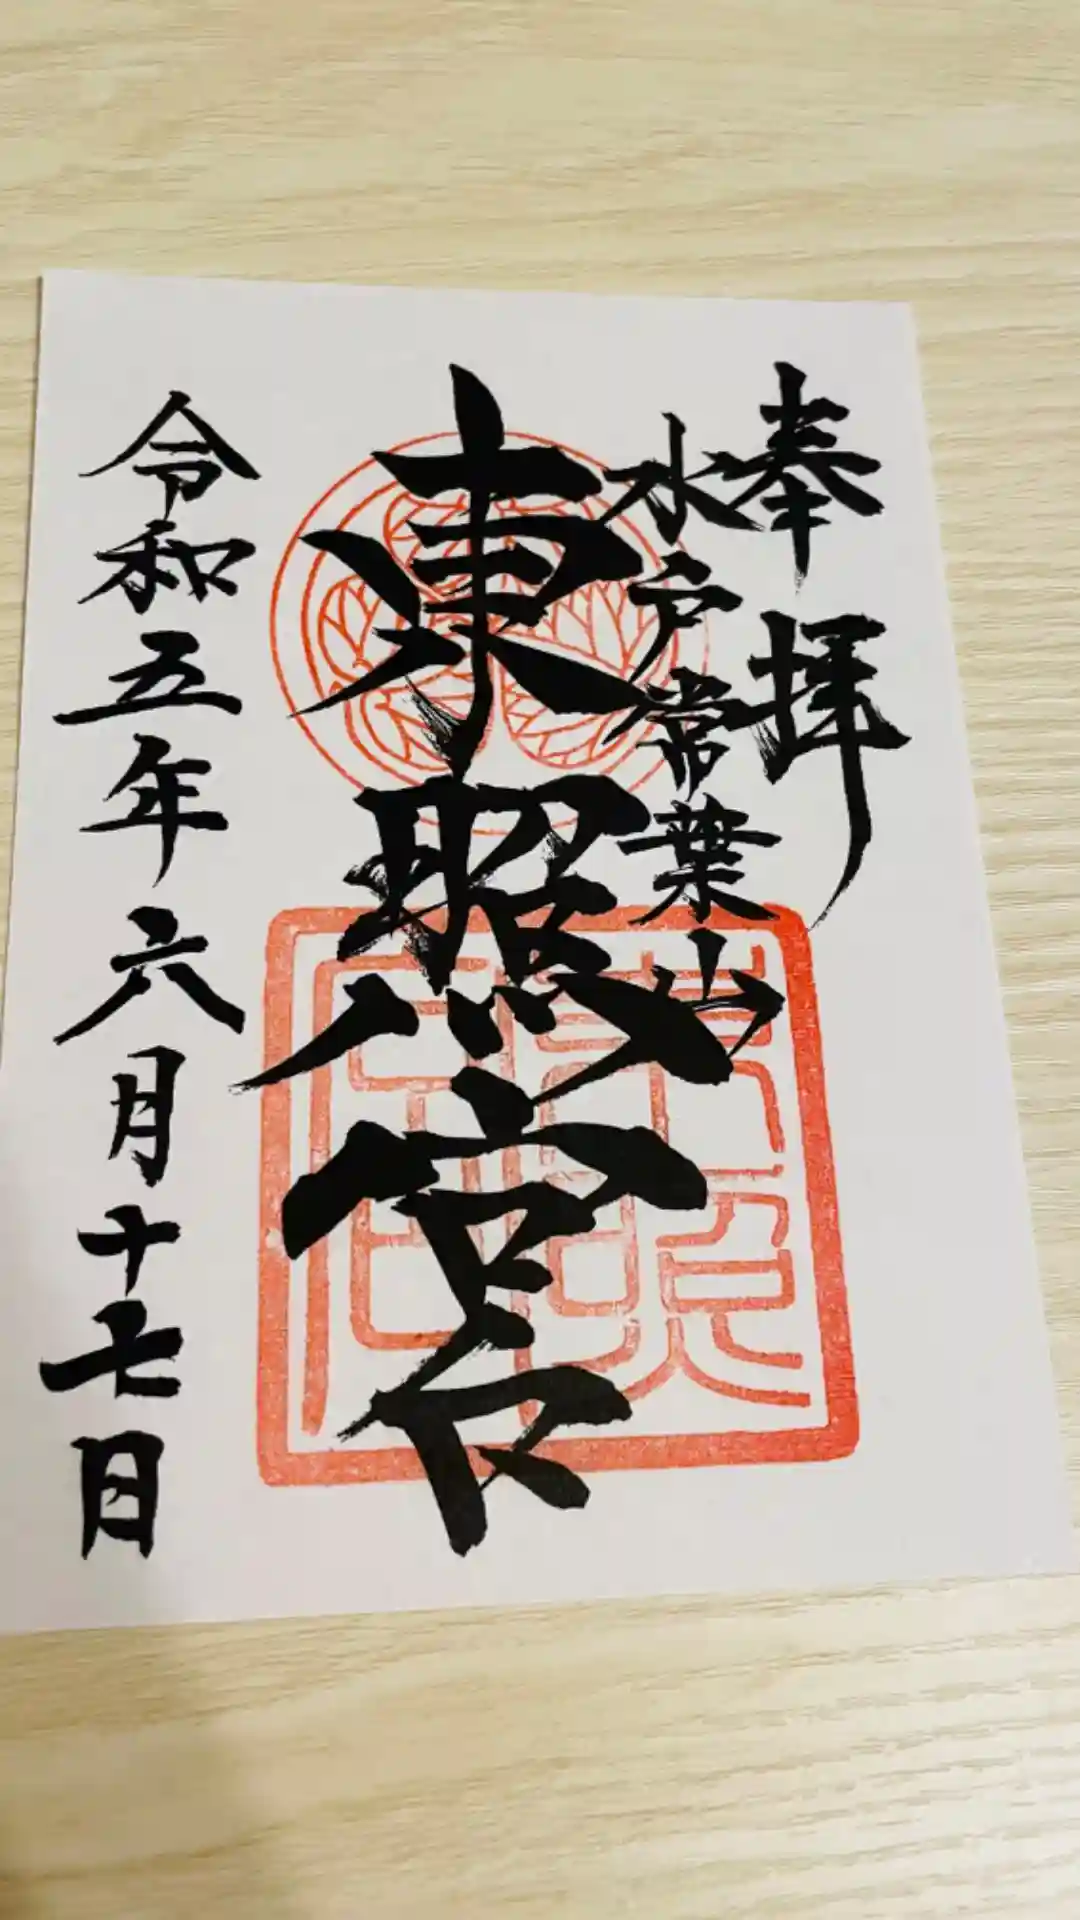 奉拝
水戸常葉山
東照宮
令和五年六月十七日
東照宮印